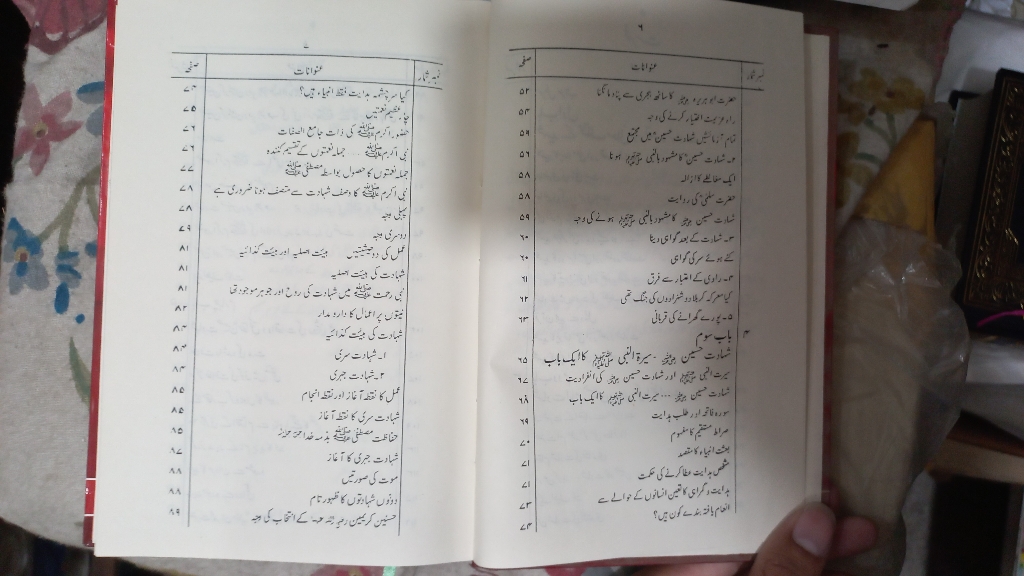 ۶
نمبر شمار عنوانات صفحہ
حضرت ابو ہریرہ رضی اللہ عنہ کا ساٹھ ہجری سے پناہ مانگنا ۵۲
راہ عزیمت اختیار کرنے کی وجہ ۵۴
تمام آزمائشیں شہادت حسین میں مجتمع ۵۹
۲۔ شہادت حسین کا مشہور بالنبی ﷺ ہونا ۵۶
ایک مغالطے کا ازالہ ۵۸
حضرت سلمیٰ کی روایت ۵۸
شہادت حسین رضی اللہ عنہ کا مشہور بالنبی ﷺ ہونے کی وجہ ۵۹
۳۔ شہادت کے بعد گواہی دینا ۶۰
کٹے ہوئے سر کی گواہی ۶۰
۴۔ راوی کے اعتبار سے فرق ۶۱
کیا معرکہ کربلا دو شہزادوں کی جنگ تھی ۶۲
۵۔ پورے گھرانے کی قربانی ۶۳
۳ باب سوم
شہادت حسین رضی اللہ عنہ ۔ سیرۃ النبی ﷺ کا ایک باب ۶۵
سیرت النبی ﷺ اور شہادت حسین رضی اللہ عنہ کی انفرادیت ۶۷
شہادت حسین رضی اللہ عنہ ۔۔۔ سیرت النبی ﷺ کا ایک باب ۶۸
سورہ فاتحہ اور طلب ہدایت ۶۹
صراط مستقیم کا مفہوم ۷۰
بعثت انبیاء کا مقصد ۷۱
شخصی ہدایت عطا کرنے کی حکمت ۷۱
ہدایت و گمراہی کا تعین انسانوں کے حوالے سے ۷۳
انعام یافتہ بندے کون ہیں؟ ۷۴
۷
نمبر شمار عنوانات صفحہ
کیا سرچشمہ ہدایت فقط انبیاء ہیں؟ ۷۴
چار عظیم نعمتیں ۷۵
حضور اکرم ﷺ کی ذات جامع الصفات ۷۶
نبی اکرم ﷺ ۔۔۔ جملہ نعمتوں کے تقسیم کنندہ ۷۶
جملہ نعمتوں کا حصول بواسطہ مصطفیٰ ﷺ ۷۷
نبی اکرم ﷺ کا وصف شہادت سے متصف ہونا ضروری ہے ۷۸
پہلی وجہ ۷۸
دوسری وجہ ۷۹
عمل کی دو حیثیتیں ہیئت اصلیہ اور ہیئت کذائیہ ۸۱
شہادت کی ہیئت اصلیہ ۸۱
نبی رحمت ﷺ میں شہادت کی روح اور جوہر موجود تھا ۸۱
نیتوں پر اعمال کا دارومدار ۸۲
شہادت کی ہیئت کذائیہ ۸۳
۱۔ شہادت سری ۸۴
۲۔ شہادت جہری ۸۴
عمل کا نقطہ آغاز اور نقطہ انجام ۸۵
شہادت سری کا نقطہ آغاز ۸۵
حفاظت مصطفیٰ ﷺ بذمہ خدا ۸۵
شہادت جہری کا آغاز ۹۷
موت کی صورتیں ۸۸
دونوں شہادتوں کا ظہور تام ۸۸
حسنین کریمین رضی اللہ عنہما کے انتخاب کی وجہ ۸۹